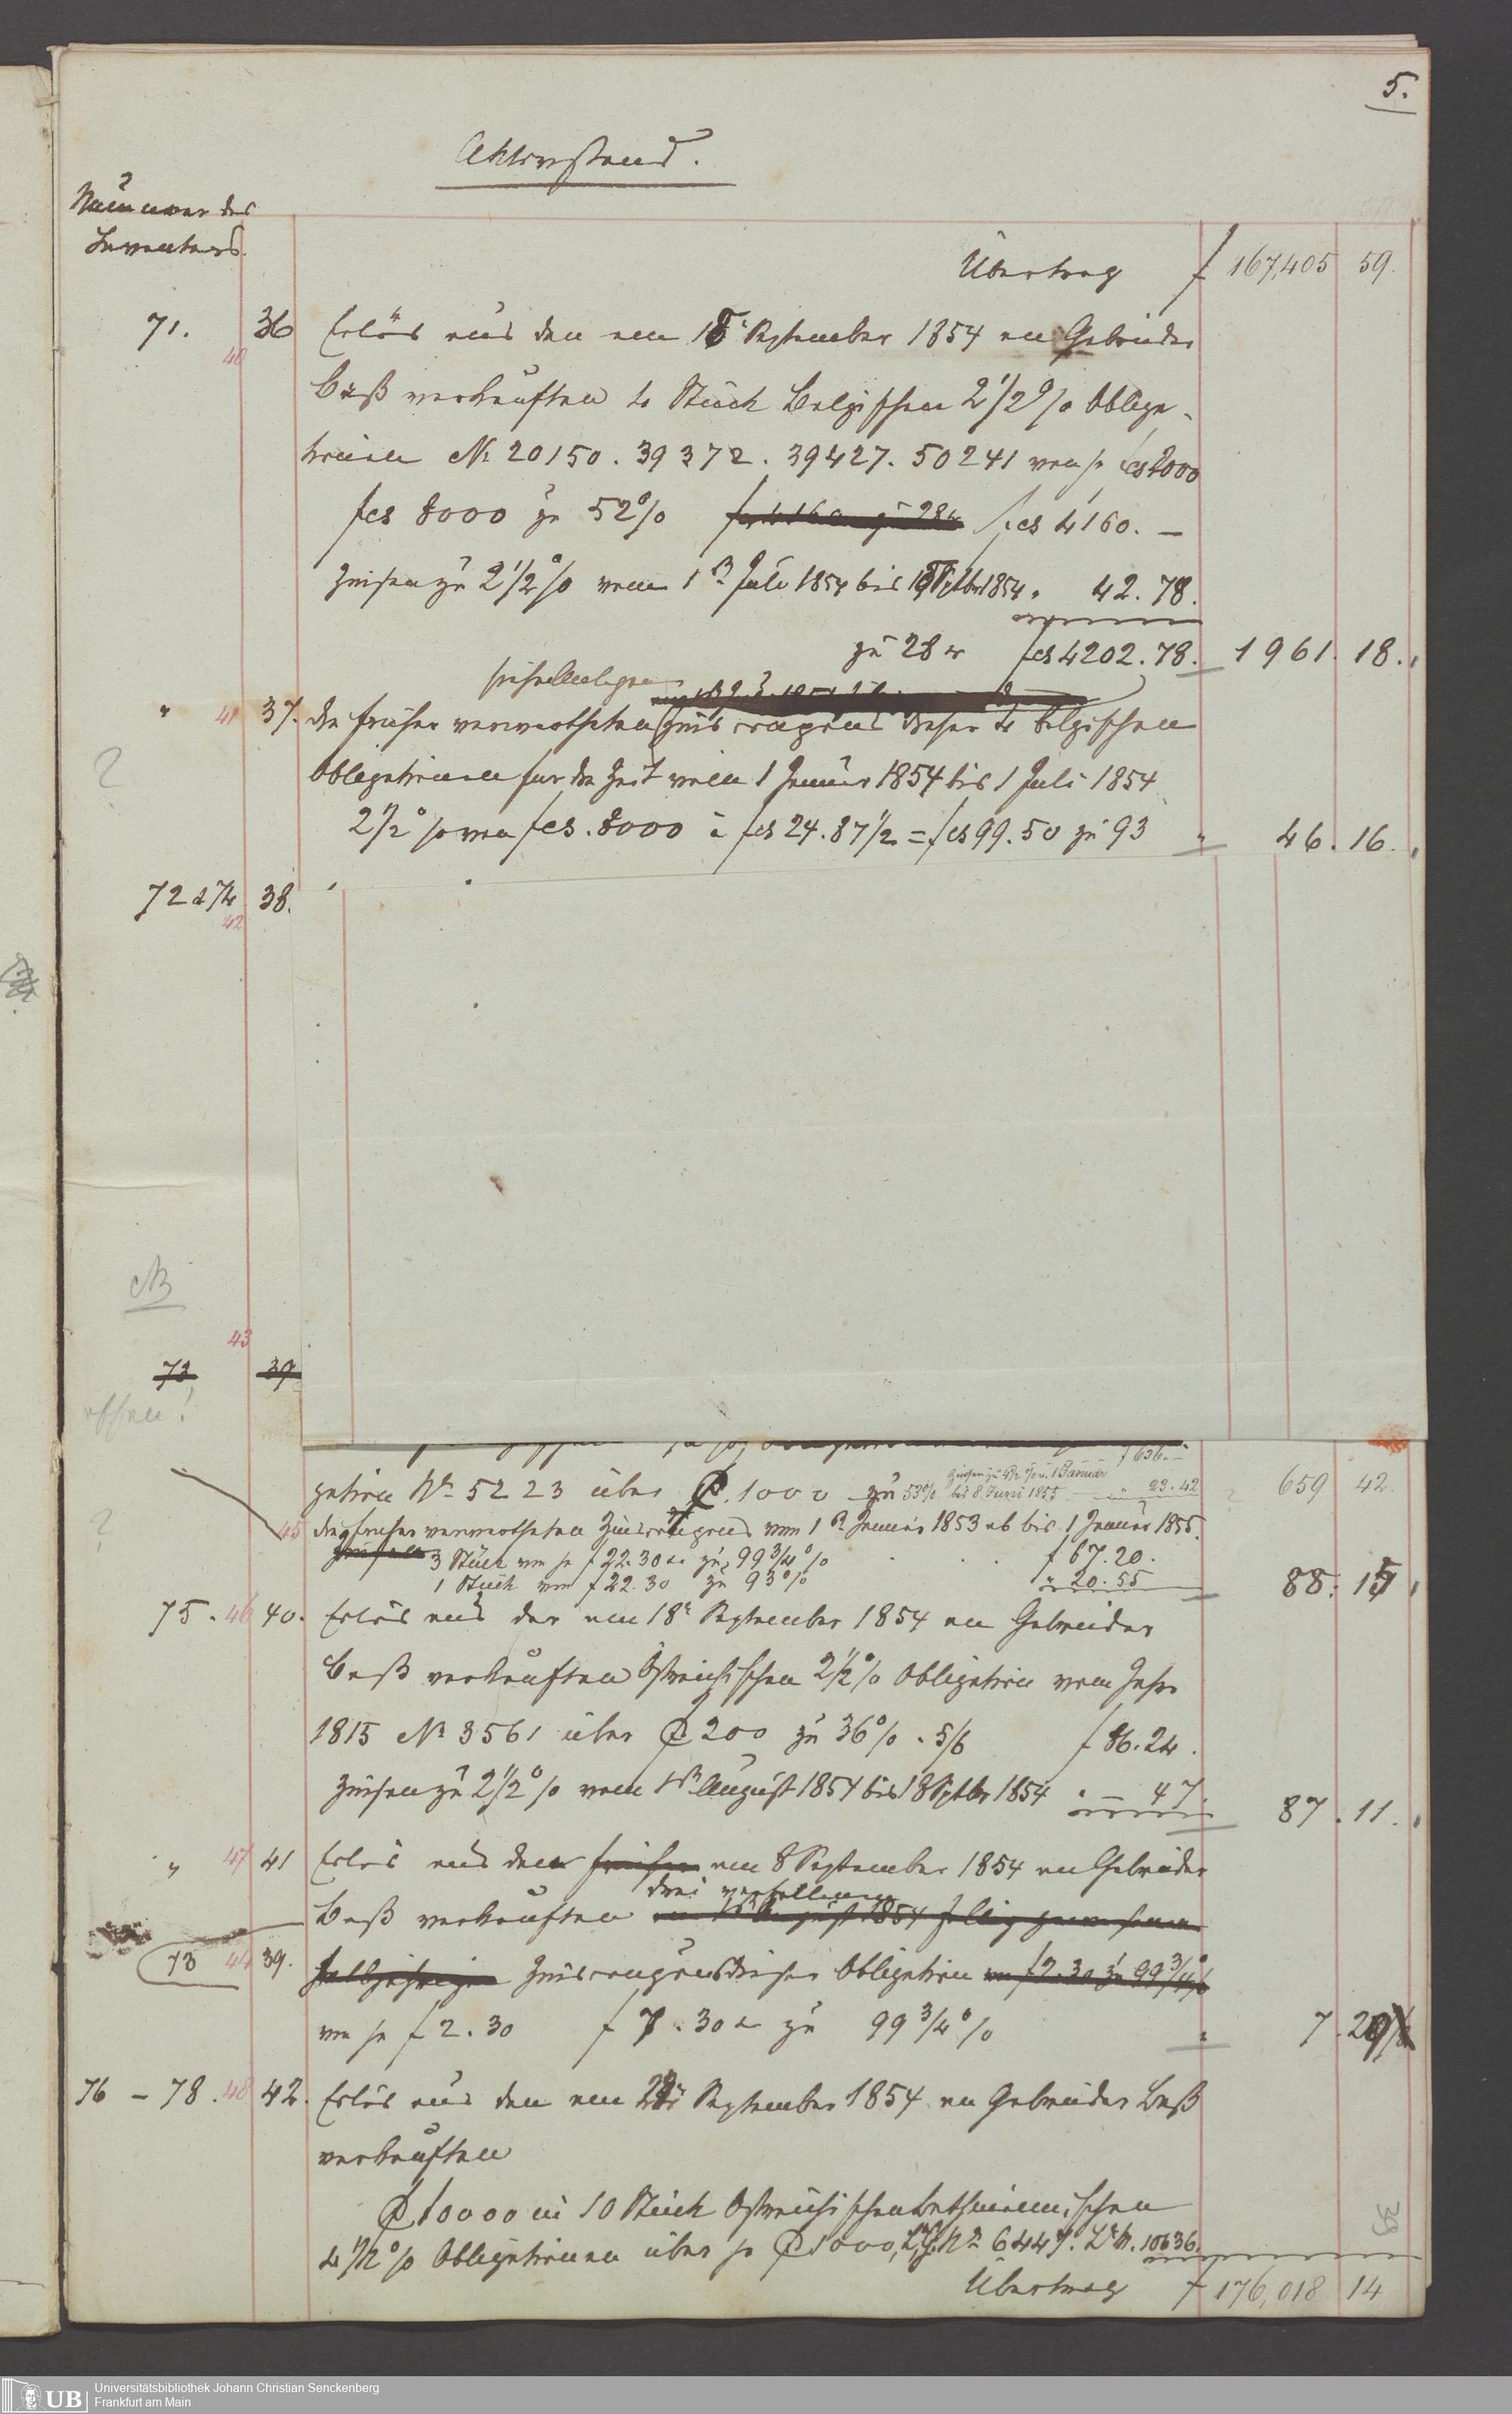 5.
Aktivstand.
Nummer des
Inventars.
Übertrag f 167,405 59.
71. 40 36 Erlös aus den am 18. September 1854 an Gebrüder
Baß verkauften 4 Stück Belgischen 2 1/2 % Obliga-
tionen No 20150. 39372. 39427. 50241 von je fcs 2000
fcs 8000 zu 52% fcs 4160. —
Zinsen zu 2 1/2 % vom 1n Juli 1854 bis Septbr 1854 " 42.78.
zu 28 xr fcs 4202.78. 1961. 18.
" 41 37. die früher verwertheten Zinscoupons dieser 4 belgischen
Obligationen für die Zeit vom 1 Januar 1854 bis 1 Juli 1854
?
2 1/2 % von fcs. 8000 à fcs 24.87 1/2 = fcs 99.50 zu 93 " 46. 16.
72 & 74 38.
42
NB
43
73 39
offen!
f 636.—
Zinsen zu 4 1/2 % v. 1 Januar
gation No 5223 über 1000 zu 53% bis 8 Juni 1855 " 23.42 659 42.
?
45 die früher verwertheten Zinscoupons vom 1n Januar 1853 ab bis 1 Januar 1855.
3 Stück von je f 22.30 xr zu 99 3/4 % f 67.20.
1 Stück von f 22.30 zu 93% " 20.55 88. 15
75. 46 40. Erlös aus der am 18n September 1854 an Gebrüder
Baß verkauften Östreichischen 2 1/2 % Obligation vom Jahr
1815 No 3561 über 200 zu 36% . 5/6 f 86.24.
Zinsen zu 2 1/2 % vom 1n August 1854 bis 18 Septbr 1854 " — 47. 87. 11.
" 47 41 Erlös aus den früher am 8 September 1854 an Gebrüder
drei verfallenen
Baß verkauften am 1n August 1854 fällig gewesenen
73 44 39. halbjährigen Zinscoupons dieser Obligation von f 2.30 zu 99 3/4 %
von je f 2.30 f 7.30 xr zu 99 3/4 % " 7. 29
76 – 78. 48 42. Erlös aus den am September 1854 an Gebrüder Baß
verkauften
10000 in 10 Stück Östreichischen Bethmännischen
4 1/2 % Obligationen über je 1000, No 6449. 10636.
Übertrag f 176,018 14
39
UB Universitätsbibliothek Johann Christian Senckenberg
Frankfurt am Main